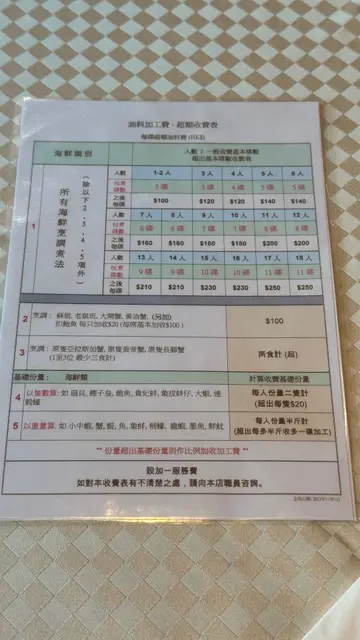 油料加工費 - 超額收費表
每碟超額油料費 (HK$)
海鮮類別
人數 / 一般收費基本碟數
超出基本碟數收費表
1
所有海鮮烹調煮法
(除以下2, 3, 4, 5項外)
人數 1-2 人 3 人 4 人 5 人 6 人
包煮碟數 3 碟 3 碟 4 碟 5 碟 5 碟
之後每碟 $100 $120 $120 $140 $140
人數 7 人 8 人 9 人 10 人 11 人 12 人
包煮碟數 6 碟 6 碟 7 碟 7 碟 8 碟 8 碟
之後每碟 $160 $160 $180 $180 $200 $200
人數 13 人 14 人 15 人 16 人 17 人 18 人
包煮碟數 9 碟 9 碟 10 碟 10 碟 11 碟 11 碟
之後每碟 $210 $210 $230 $230 $250 $250
2
烹調 : 蘇眉, 老鼠斑, 大閘蟹, 黃油蟹 (另加)
扣鮑魚 每只加收$20 (每席基本加收$100 )
$100
3
烹調 : 原隻亞拉斯加蟹, 原隻黃帝蟹, 原隻長腳蟹
(1至3位 最少三食計)
兩食計 (起)
基礎份量 : 海鮮類
計算收費基礎份量
4
以隻數算: 如 扇貝, 蟶子皇, 鮑魚, 貴妃蚌, 象拔蚌仔, 大蝦, 瀨
每人份量二隻計
(超出每隻$20)
5
以重量算: 如 小中蝦, 蟹, 蜆, 魚, 象蚌, 螄蠔, 龍蝦, 墨魚, 鮮魷
每人份量半斤計
(超出每多半斤收多一碟加工)
** 份量超出基礎份量則作比例加收加工費 **
設加一服務費
如對本收費表有不清楚之處，請向本店職員咨詢。